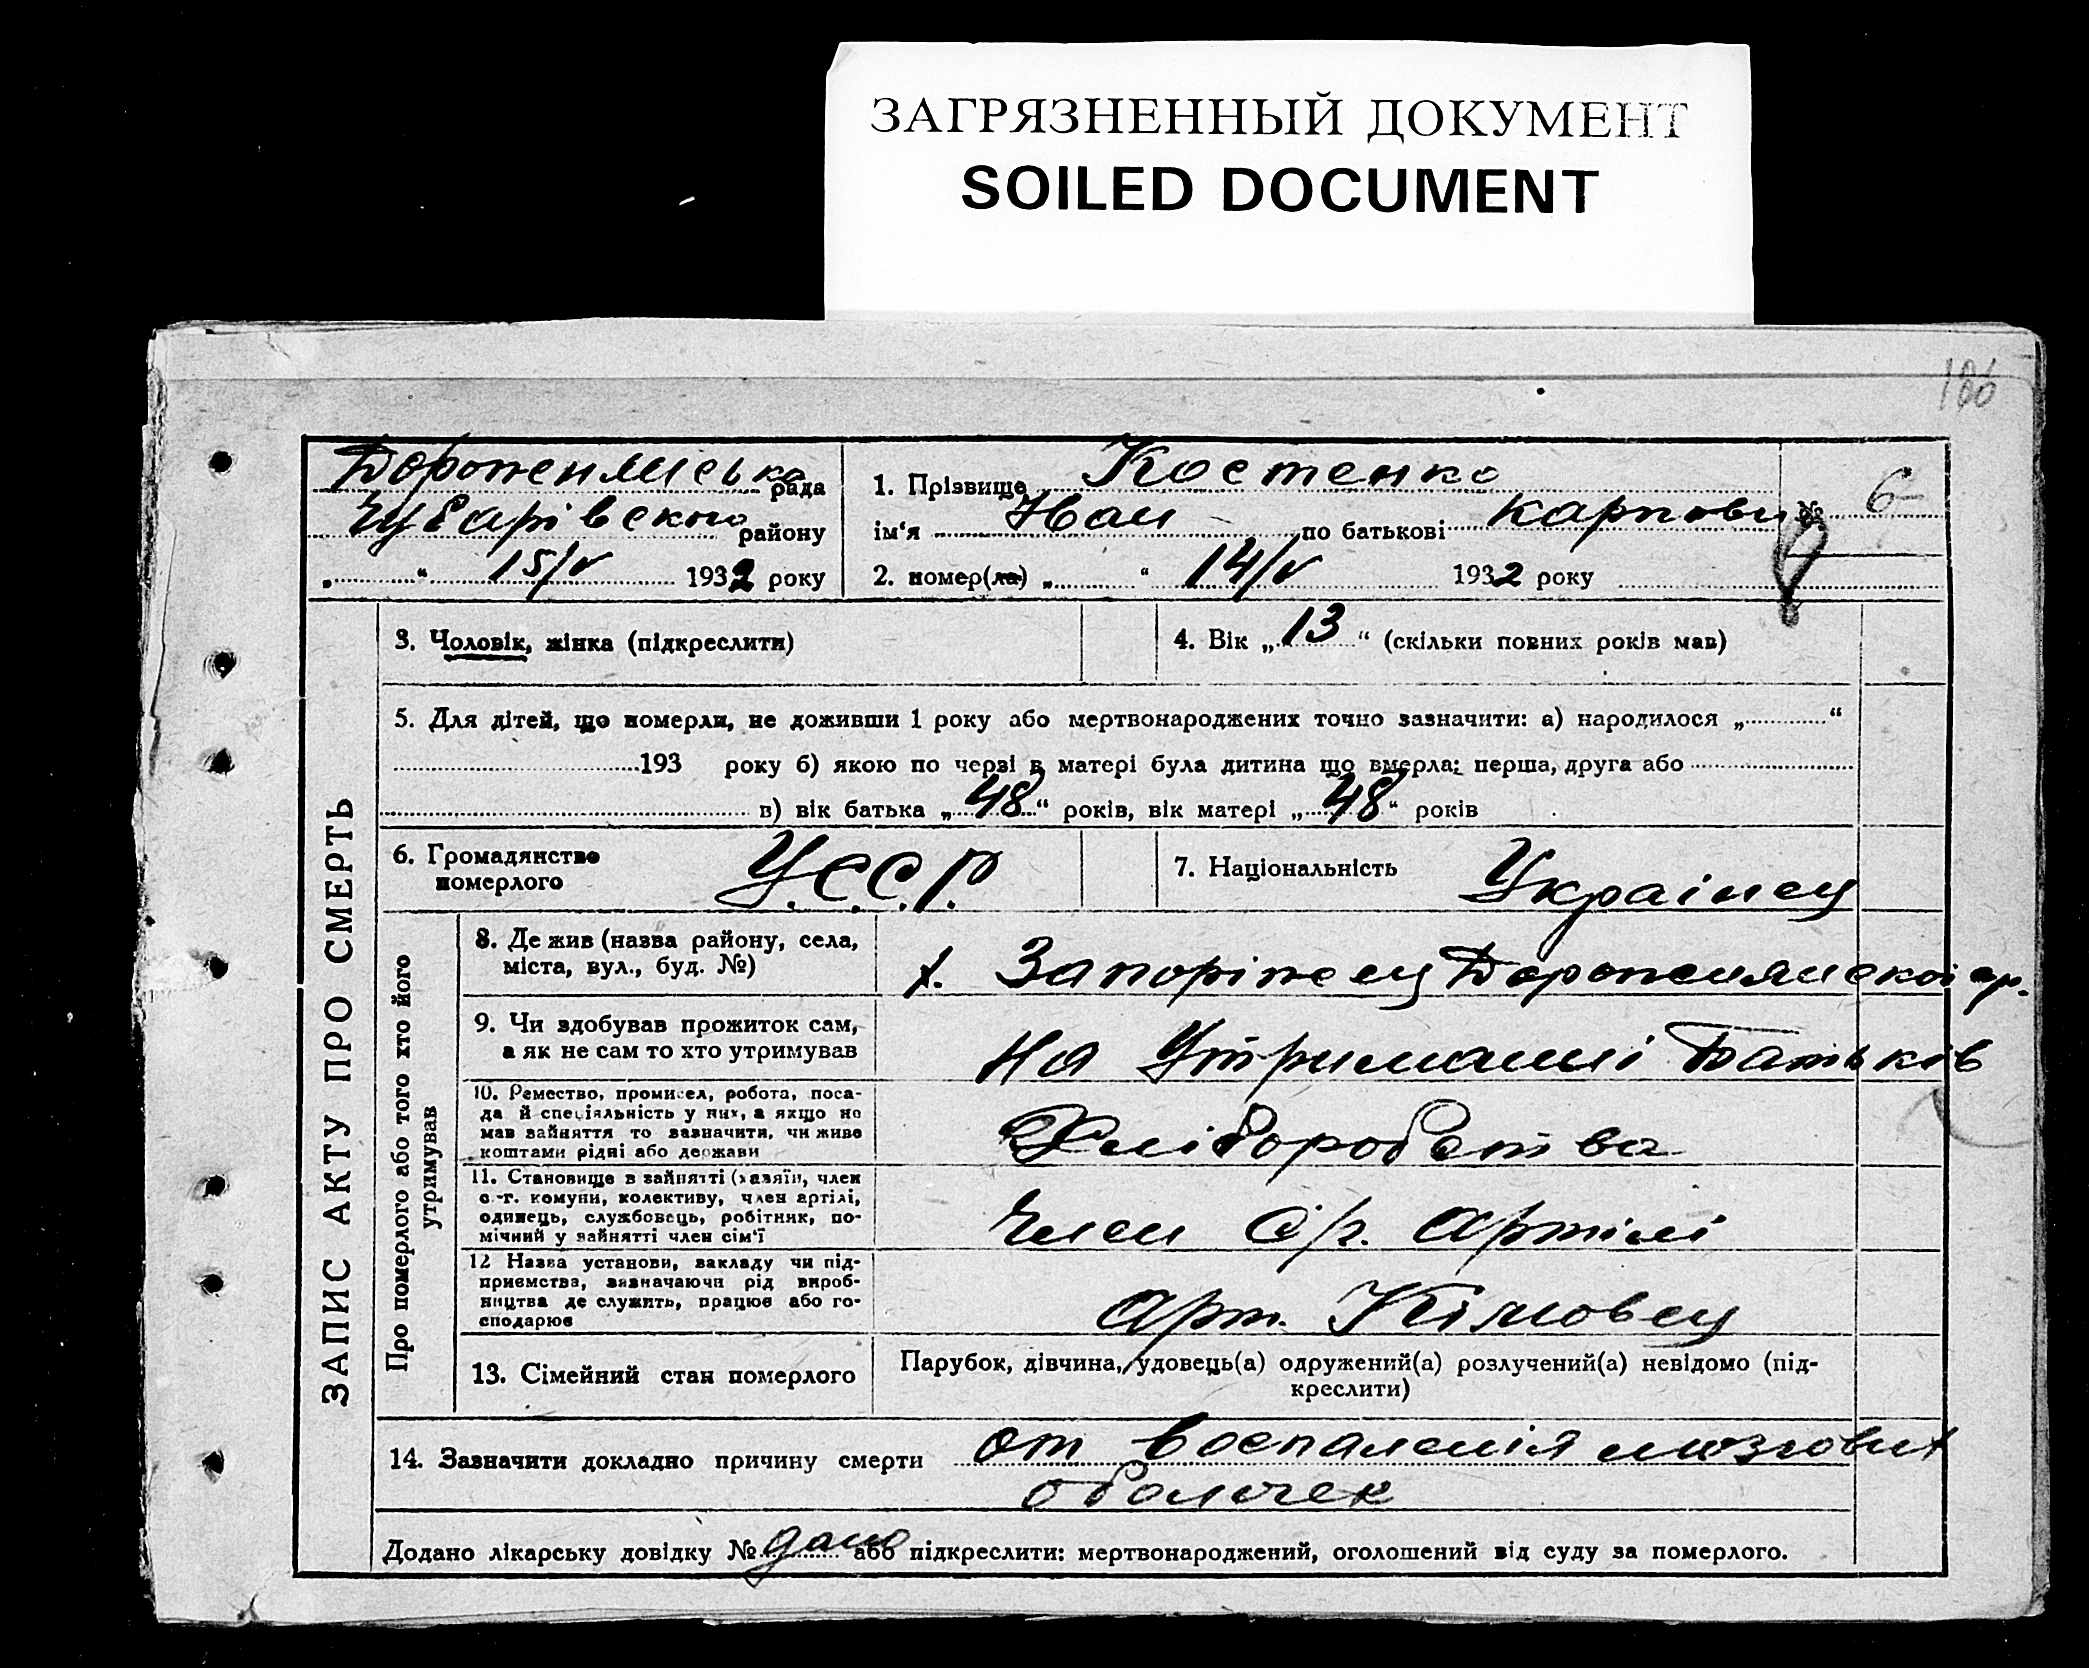 ЗАГРЯЗНЕННЫЙ ДОКУМЕНТ
SOILED DOCUMENT
186
рада
Чубарівского району
„ “ 15/V 1932 року
1. Прізвище Костенко
ім‘я Иан по батькові карпович
6
2. помер(ла) „ “ 14/V 1932 року
ЗАПИС АКТУ ПРО СМЕРТЬ
3. Чоловік, жінка (підкреслити)
4. Вік „13“ (скільки повних років мав)
5. Для дітей, що померли, не доживши 1 року або мертвонароджених точно зазначити: а) народилося „ “
193 року б) якою по черзі в матері була дитина що вмерла: перша, друга або
в) вік батька „48“ років, вік матері „48“ років
6. Громадянство
померлого
У.С.С.Р.
7. Національність Украінец
Про померлого або того хто його
утримував
8. Де жив (назва району, села,
міста, вул., буд. №)
х. Запоріжец
9. Чи здобував прожиток сам,
а як не сам то хто утримував
на Утриманні Батьків
10. Ремество, промисел, робота, поса-
да й спеціяльність у них, а якщо но
мав зайняття то зазначити, чи живе
коштами рідні або держави
Хліборобства
11. Становище в зайнятті (хазяїн, член
с.-г. комуни, колективу, член артілі,
одинець, службовець, робітник, по-
мічний у зайнятті член сім‘ї
Член С/г. артілі
12 Назва установи, закладу чи під-
приємства, зазначаючи рід вироб-
ництва де служить, працює або го-
сподарює
арт.
13. Сімейний стан померлого
Парубок, дівчина, удовець(а) одружений(а) розлучений(а) невідомо (під-
креслити)
14. Зазначити докладно причину смерти от воспаленія мозгових
оболочек
Додано лікарську довідку № дано або підкреслити: мертвонароджений, оголошений від суду за померлого.